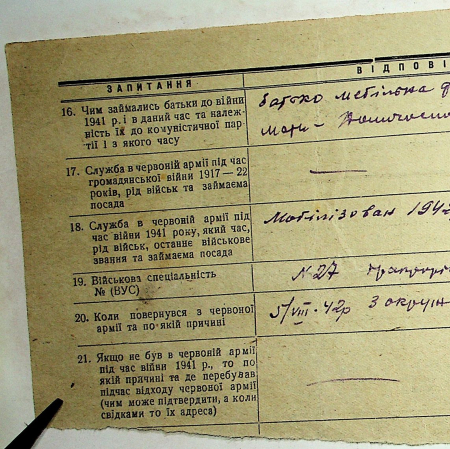 ЗАПИТАННЯ
ВІДПОВІ
16. Чим займались батьки до війни
1941 р. і в даний час та належ-
ність їх до комуністичної пар-
тії і з якого часу
батько мебільна ф
мати –
17. Служба в червоній армії під час
громадянської війни 1917—22
років, рід військ та займаєма
посада
18. Служба в червоній армії під
час війни 1941 року, який час,
рід військ, останнє військове
звання та займаєма посада
Мобілізован 1942
19. Військова спеціальність
№ (ВУС)
№ 27
20. Коли повернувся з червоної
армії та по якій причині
5/VIII·42р З окруж
21. Якщо не був в червоній армії
під час війни 1941 р., то по
якій причині та де перебував
підчас відходу червоної армії
(чим може підтвердити, а коли
свідками то їх адреса)